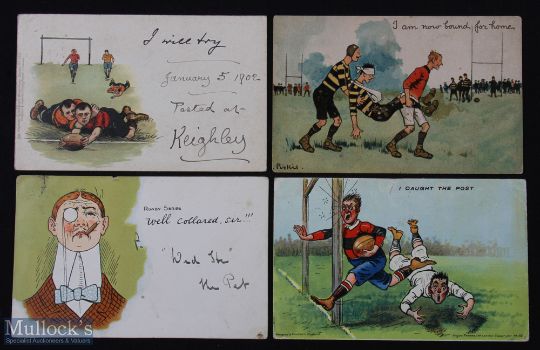 I will try
January 5 1902
Posted at
Keighley
I am now bound for home
RUGBY SERIES
Well collared, sir!!!
I CAUGHT THE POST
Mullock's
Specialist Auctioneers & Valuers